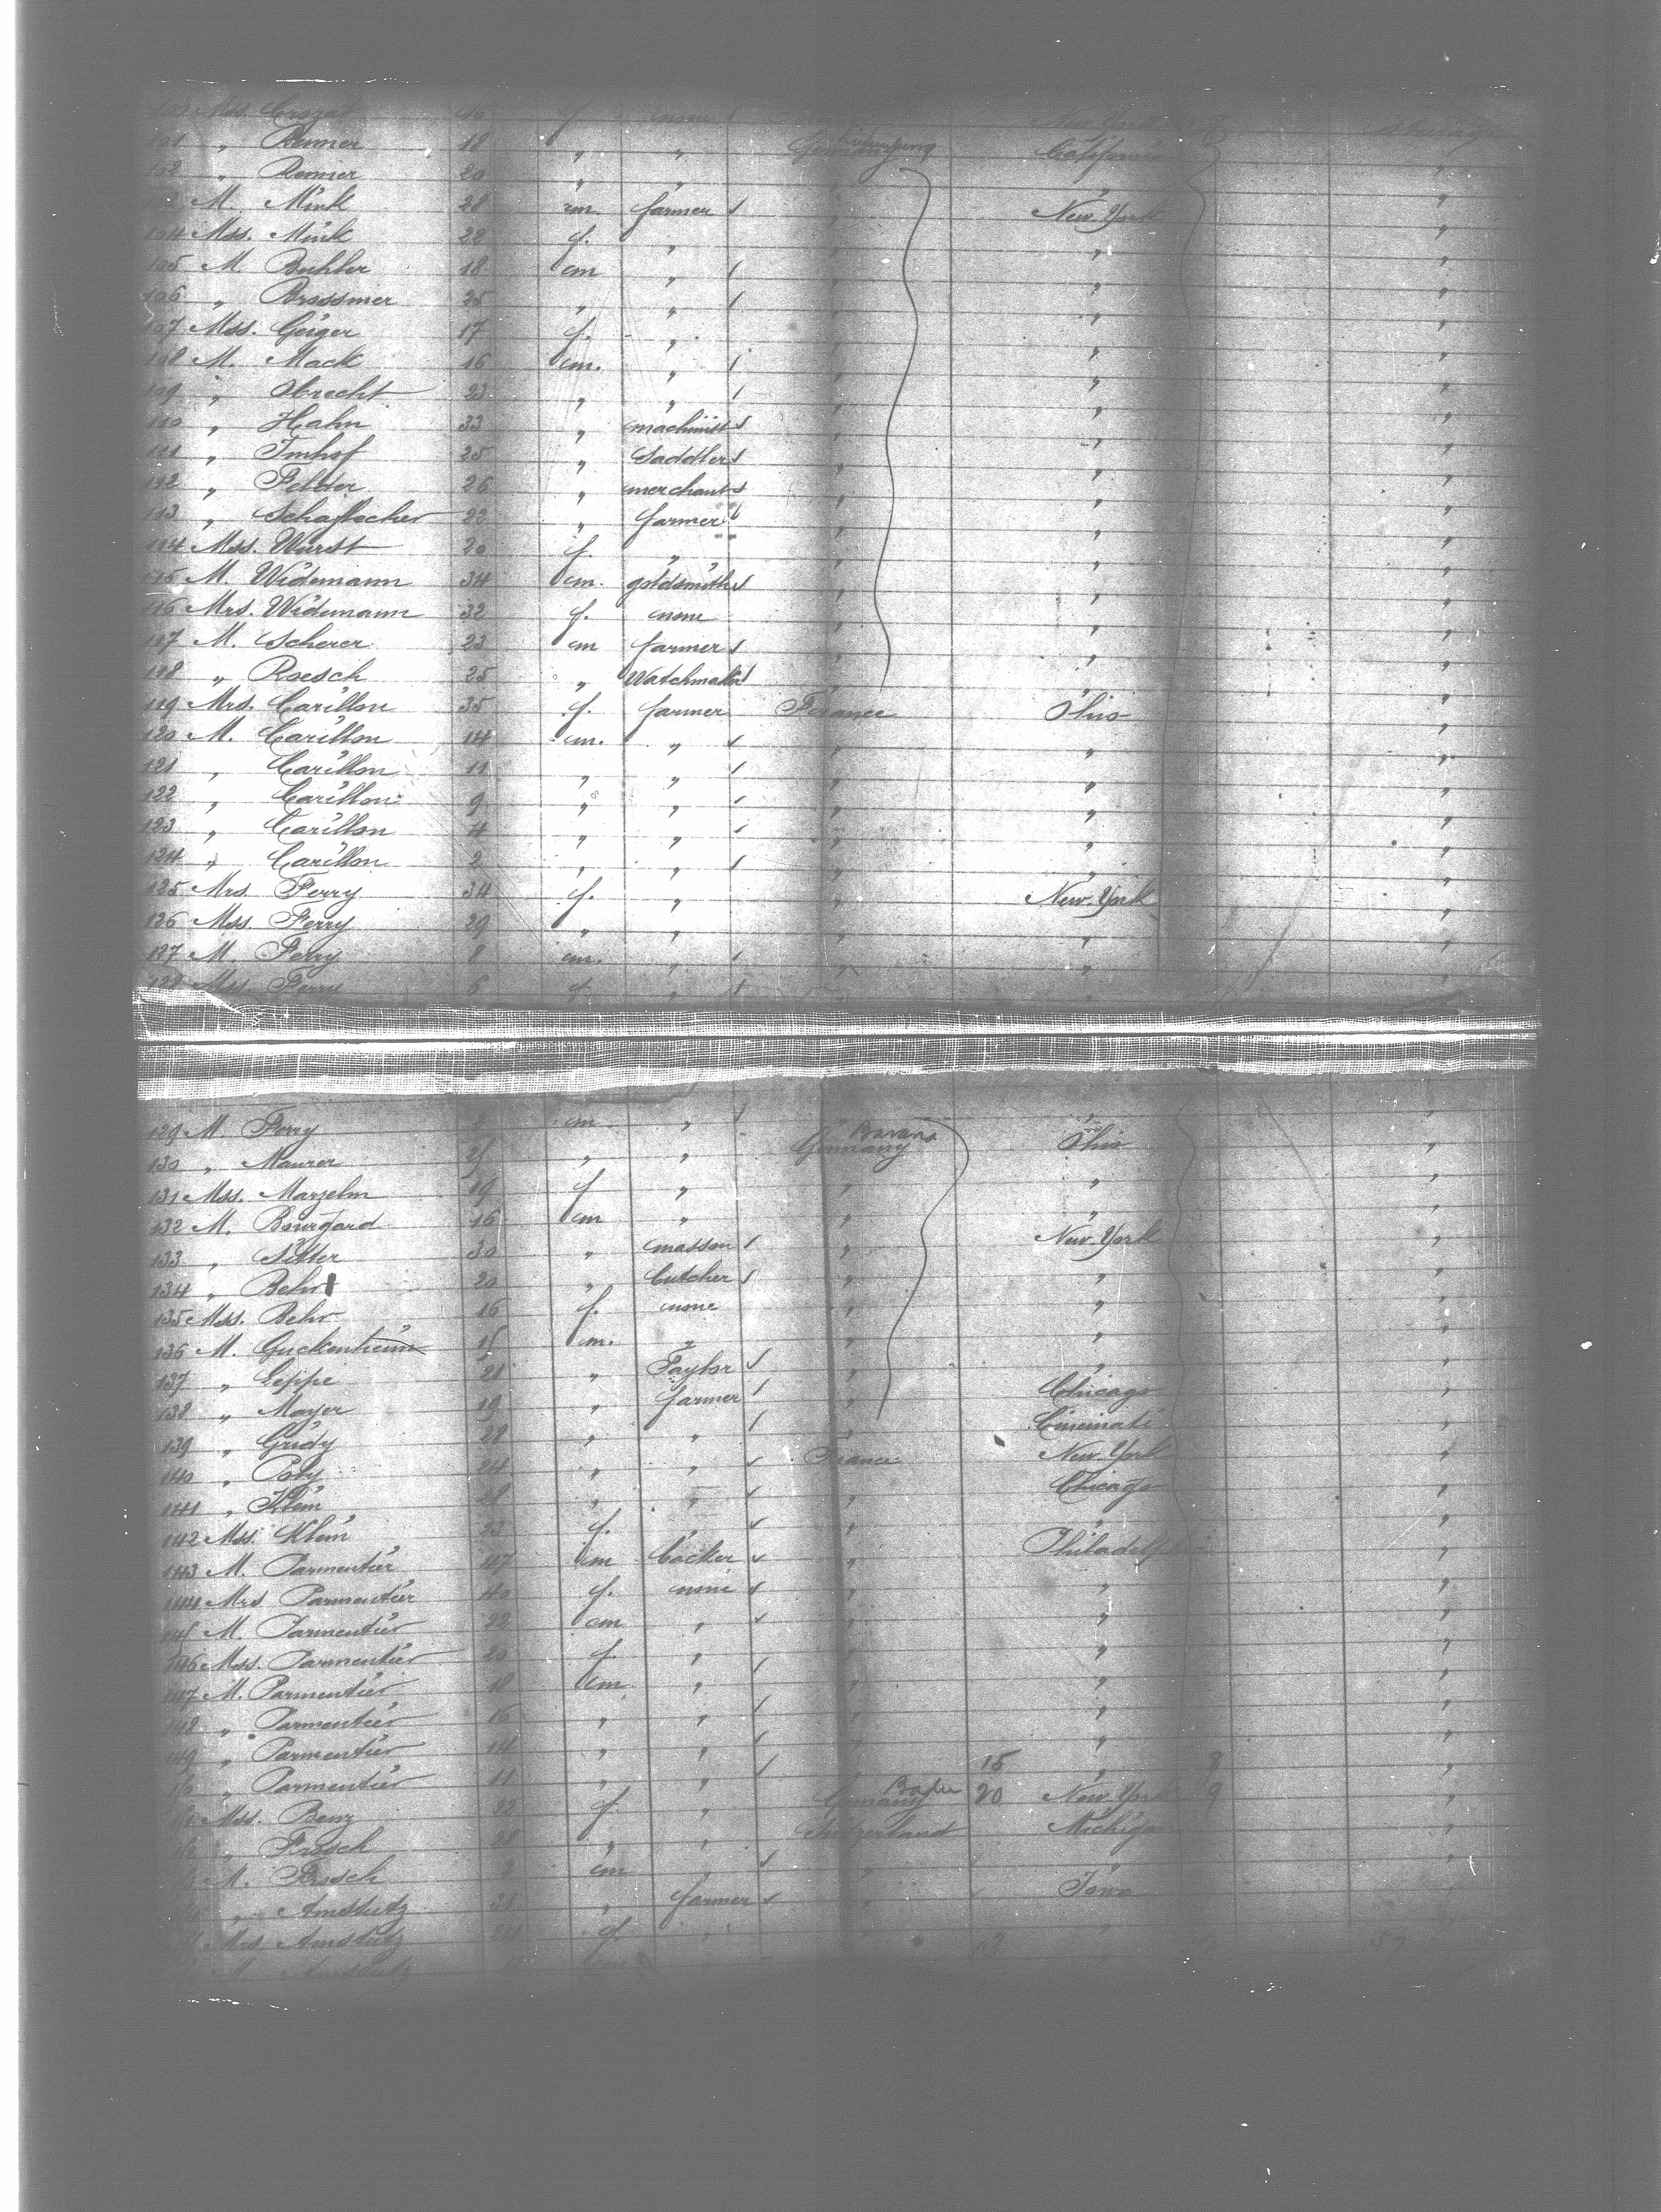 100 Mss. Crozat f. none
101 „ Renner 18 „ „ Germany California
102 „ Renner 20 „ „ „ „ „
M. Mink 28 m. farmer „ New York „
104 Mss. Mink 22 f. „ „ „ „
105 M Buhler 18 m „ „ „ „
106 „ Brossmer 25 „ „ „ „ „
107 Mss. Geiger 17 f. „ „ „ „
108 M. Mack 16 m. „ „ „ „
109 „ Obrecht 23 „ „ „ „ „
110 „ Hahn 33 „ machinist „ „ „
111 „ Imhof 25 „ Saddler „ „ „
112 „ Felder 26 „ merchant „ „ „
113 „ Schaflocher 22 „ farmer „ „ „
114 Mss. Wurst 20 f. „ „ „ „
115 M. Widemann 34 m. goldsmith „ „ „
116 Mrs. Widemann 32 f. none „ „ „
117 M. Scherer 23 m farmer „ „ „
118 „ Roesch 25 „ Watchmaker „ „ „
119 Mrs. Carillon 35 f. farmer France Ohio „
120 M. Carillon 14 m. „ „ „ „
121 „ Carillon 11 „ „ „ „ „
122 „ Carillon 9 „ „ „ „ „
123 „ Carillon 4 „ „ „ „ „
124 „ Carillon 2 „ „ „ „ „
125 Mrs. Ferry 34 f. „ „ New York „
126 Mss. Ferry 29 „ „ „ „ „
127 M. Ferry 8 m. „ „ „ „
128 Mss. Ferry 6 f. „ „ „ „
129 M. Ferry 2 m „ „ „ „
130 „ Maurer „ „ Germany Bavaria Ohio „
131 Mss. Marzelm 19 f „ „ „ „
132 M. Bourgard 16 m „ „ „ „
133 „ Sitter 30 „ masson „ New York „
134 „ Behr 20 „ butcher „ „ „
135 Mss. Behr 16 f. none „ „ „
136 M. Guckenheim 15 m. „ „ „ „
137 „ Geppe 21 „ Taylor „ „ „
138 „ Mayer 19 „ farmer „ Chicago „
139 „ Gridy 28 „ „ „ Cincinati „
140 „ Poty 24 „ „ France New York „
141 „ Klein 28 „ „ „ Chicago „
142 Mss. Klein 23 f. „ „ „ „
143 M. Parmentier 47 m backer „ Philadelphia „
144 Mrs Parmentier 40 f. none „ „ „
145 M. Parmentier 22 m „ „ „ „
146 Mss. Parmentier 20 f. „ „ „ „
147 M. Parmentier 18 m. „ „ „ „
148 „ Parmentier 16 „ „ „ „ „
149 „ Parmentier 14 „ „ „ „ „
„ Parmentier 11 „ „ „ 15 „ „
Mss. Benz 22 f. „ Germany Baden 20 New York 9 „
„ Frosch 28 „ „ Switzerland Michigan „
M. Frosch 2 m „ „ „ „
„ Amstutz 31 „ farmer „ Iowa „
Mrs. Amstutz 24 f. „ „ „ „
M. Amstutz